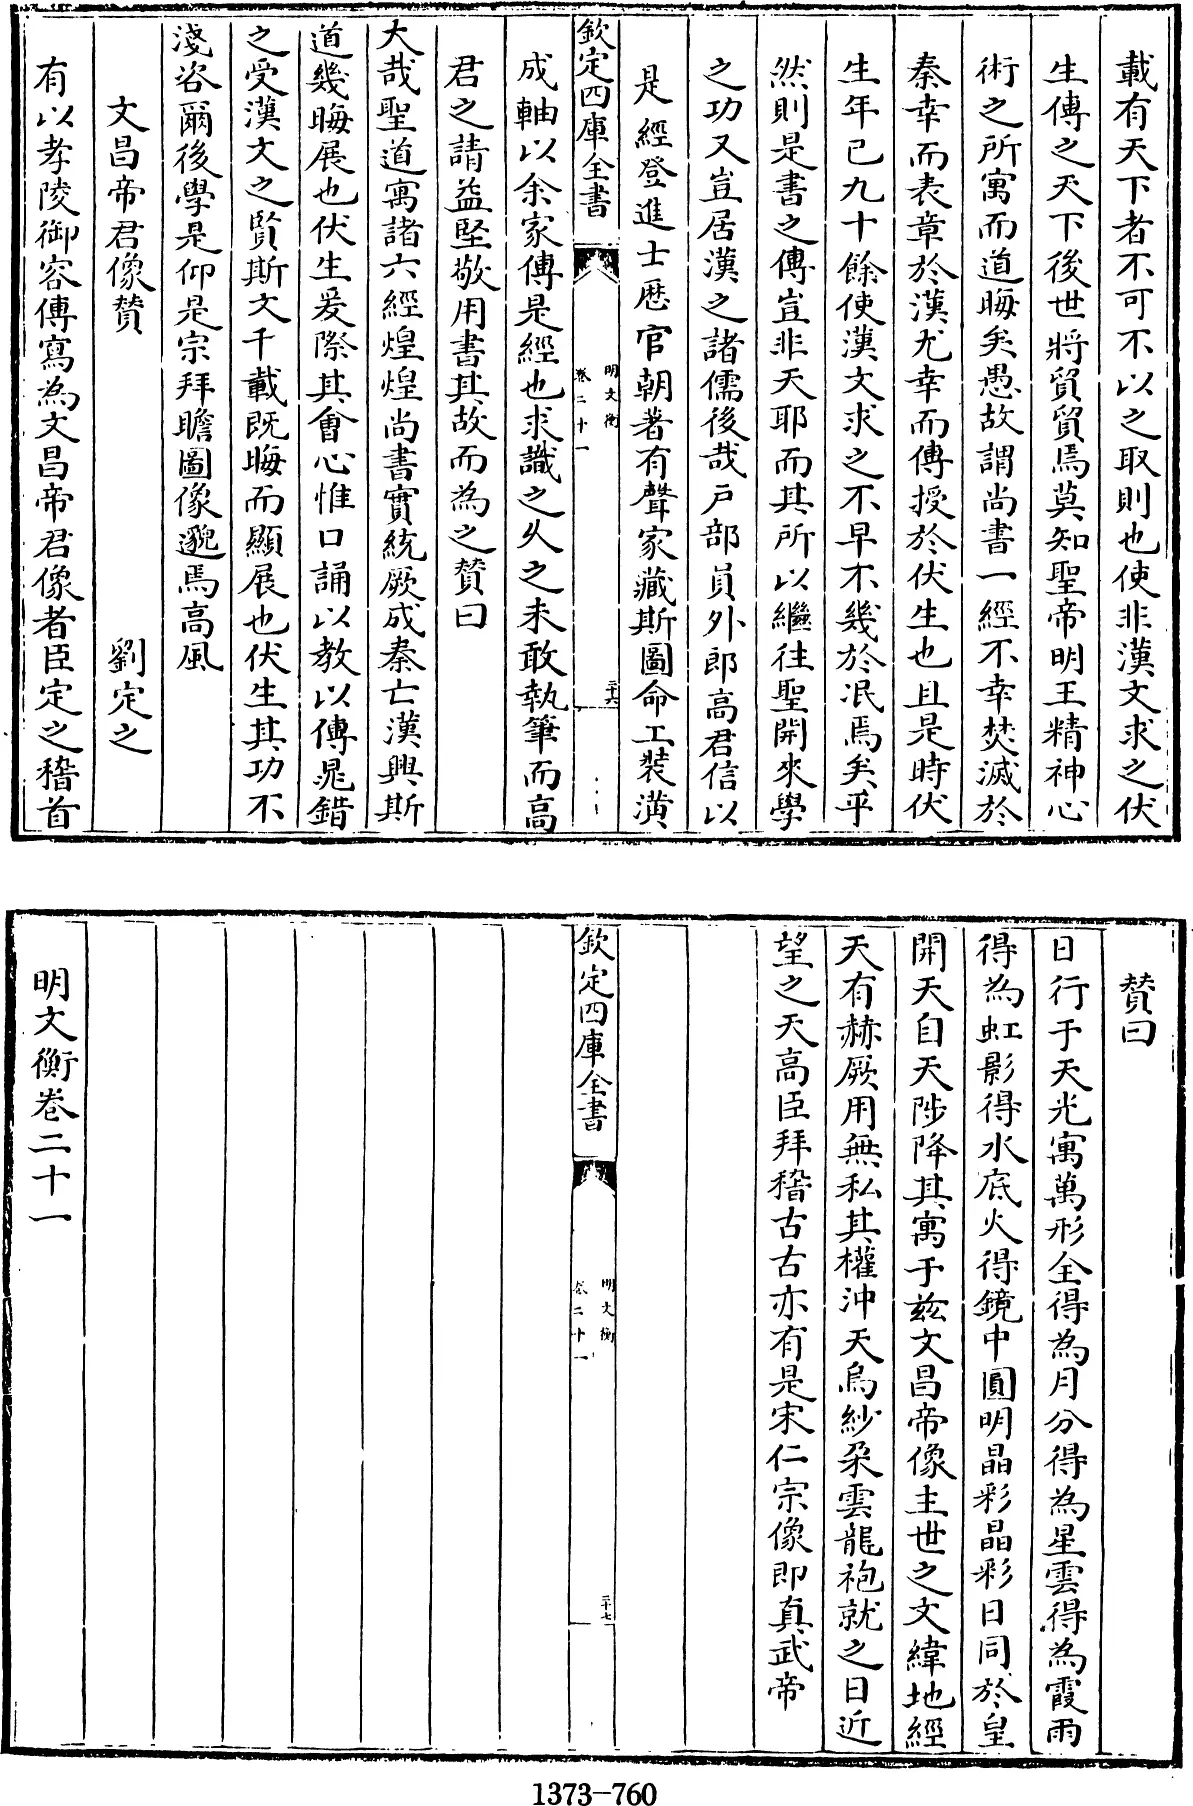 載有天下者不可不以之取則也使非漢文求之伏
生傳之天下後世將貿貿焉莫知聖帝明王精神心
術之所寓而道晦矣愚故謂尚書一經不幸焚滅於
秦幸而表章於漢尤幸而傳授於伏生也且是時伏
生年已九十餘使漢文求之不早不幾於泯焉矣乎
然則是書之傳豈非天耶而其所以繼往聖開來學
之功又豈居漢之諸儒後哉戶部員外郎高君信以
是經登進士歷官朝著有聲家藏斯圖命工裝潢
欽定四庫全書
明文衡
卷二十一
三十六
成軸以余家傳是經也求識之久之未敢執筆而高
君之請益堅敬用書其故而為之贊曰
大哉聖道寓諸六經煌煌尚書實統厥成秦亡漢興斯
道幾晦展也伏生爰際其會心惟口誦以教以傳鼂錯
之受漢文之賢斯文千載既晦而顯展也伏生其功不
淺咨爾後學是仰是宗拜瞻圖像邈焉高風
文昌帝君像贊 劉定之
有以孝陵御容傳寫為文昌帝君像者臣定之稽首
贊曰
日行于天光寓萬形全得為月分得為星雲得為霞雨
得為虹影得水底火得鏡中圓明晶彩晶彩日同於皇
開天自天陟降其寓于茲文昌帝像主世之文緯地經
天有赫厥用無私其權沖天烏紗朶雲龍袍就之日近
望之天高臣拜稽古古亦有是宋仁宗像即真武帝
欽定四庫全書
明文衡
卷二十一
三十七
明文衡卷二十一
1373-760